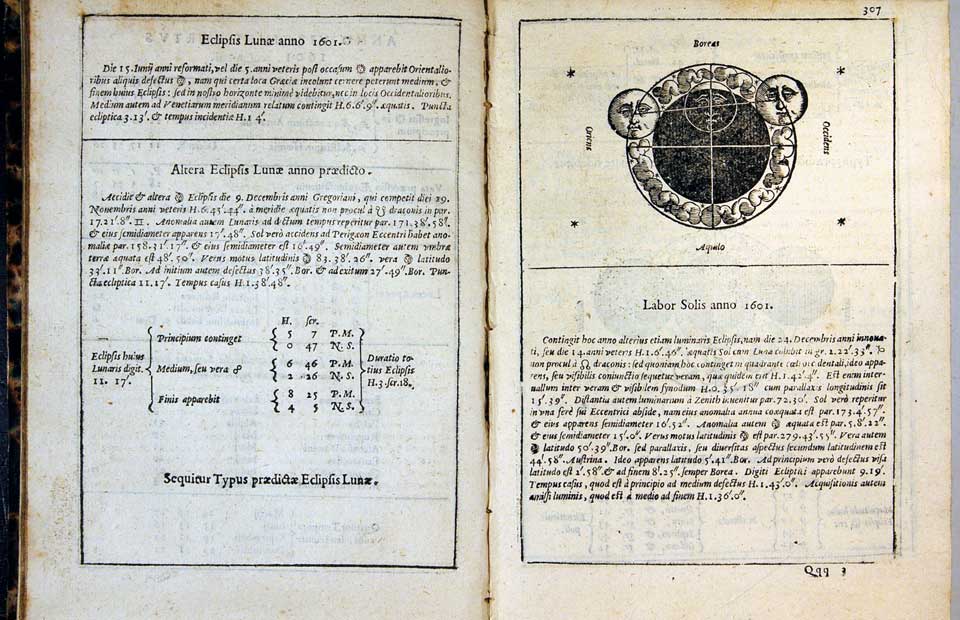 Eclipsis Lunæ anno 1601.
Die 15. Iunij anni reformati, vel die 5. anni veteris post occasum apparebit Orientalio-
ribus aliquis defectus, nam qui certa loca Græcia incolunt cernere poterunt medium, &
finem huius Eclipsis: sed in nostro horizonte minimè videbitur, nec in locis Occidentalioribus.
Medium autem ad Venetiarum meridianum relatum contingit H. 6. 6'. 9''. æquatis. Puncta
ecliptica 3. 13'. & tempus incidentiæ H. 1 4'.
Altera Eclipsis Lunæ anno prædicto.
Accidit & altera Eclipsis die 9. Decembris anni Gregoriani, qui competit diei 29.
Novembris anni veteris H. 6. 45'. 44''. à meridie æquatis non procul à ☊ draconis in par.
17. 21'. 8''. ♊. Anomalia autem Lunaris ad dictum tempus reperitur par. 171. 38'. 58''.
& eius semidiameter apparens 17'. 48''. Sol verò accidens ad Perigæon Eccentri habet ano-
maliæ par. 158. 31'. 17''. & eius semidiameter est 16'. 49''. Semidiameter autem vmbræ
terræ æquata est 48'. 50''. Verus motus latitudinis 83. 38'. 26''. vera latitudo
33'. 11''. Bor. Ad initium autem defectus 38'. 35''. Bor. & ad exitum 27'. 49''. Bor. Pun-
cta ecliptica 11. 17'. Tempus casus H. 1. 38'. 48''.
H. scr.
Eclipsis huius Lunaris digit. 11. 17'.
Principium continget 5 7 P. M.
0 47 N. S.
Medium, seu vera ☍ 6 46 P. M.
2 26 N. S.
Finis apparebit 8 25 P. M.
4 5 N. S.
Duratio totius Eclipsis H. 3. scr. 18.
Sequitur Typus prædictæ Eclipsis Lunæ.
307
Boreas
Oriens
Occidens
Aquilo
Labor Solis anno 1601.
Contingit hoc anno alterius etiam luminaris Eclipsis, nam die 24. Decembris anni innova-
ti, seu die 14. anni veteris H. 1. 6'. 46''. æquatis Sol cum Luna coibit in gr. 1. 22'. 33''. ♑
non procul à ☊ draconis: sed quoniam hoc contingit in quadrante cœli occidentali, ideo appa-
rens, seu visibilis coniunctio sequetur veram, quæ quidem erit H. 1. 42'. 4''. Est enim inter-
uallum inter veram & visibilem synodum H. 0. 35'. 18'' cum parallaxis longitudinis sit
15'. 39''. Distantia autem luminarium à Zenith inuenitur par. 72. 30'. Sol verò reperitur
in vna ferè sui Eccentrici abside, nam eius anomalia annua coæquata est par. 173. 4'. 57''.
& eius apparens semidiameter 16'. 52''. Anomalia autem æquata est par. 5. 8'. 22''.
& eius semidiameter 15'. 0''. Verus motus latitudinis est par. 279. 43'. 55''. Vera autem
latitudo 50'. 39''. Bor. sed parallaxis, seu diuersitas aspectus secundum latitudinem est
44'. 58''. Austrina. Ideo apparens latitudo 5'. 41''. Bor. Ad principium verò defectus visa
latitudo est 2'. 58''. & ad finem 8'. 25''. semper Borea. Digiti Ecliptici apparebunt 9. 19'.
Tempus casus, quod est à principio ad medium defectus H. 1. 43'. 0''. Acquisitionis autem
amissi luminis, quod est à medio ad finem H. 1. 36'. 0''.
Qqq 3